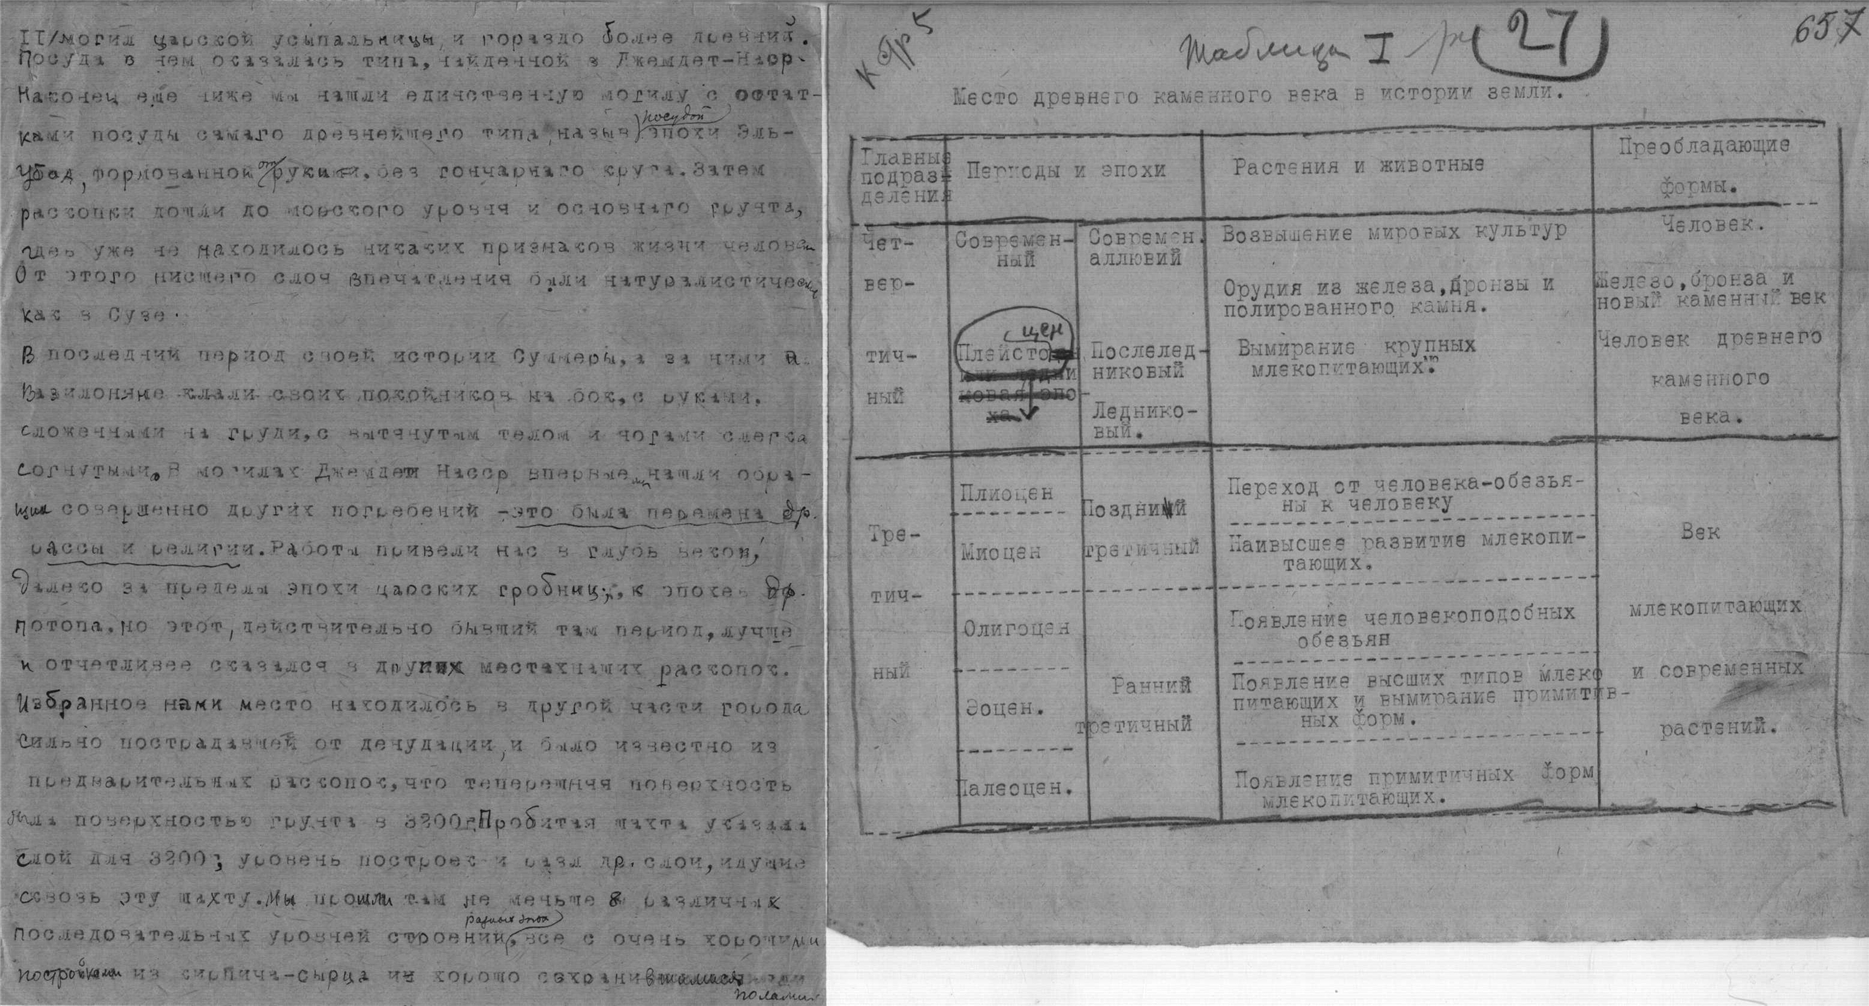 II/могил царской усыпальницы, и гораздо более древний.
Посуда в нем оказалась типа, найденной в Джемдет-Наср.
Наконец еще ниже мы нашли единственную могилу с остат-
ками посуды самаго древнейшего типа, назыв посудой эпохи Эль-
Убед, формованной от руки, без гончарнаго круга. Затем
раскопки дошли до морского уровня и основнаго грунта,
где уже не находилось никаких признаков жизни человека
От этого нисшего слоя впечатления были натуралистически
как в Сузе.
В последний период своей истории Суммеры, а за ними
Вавилоняне клали своих покойников на бок, с руками,
сложенными на груди, с вытянутым телом и ногами слегка
согнутыми. В могилах Джемдет Насср впервые мы нашли обра-
щик совершенно других погребений - это была перемена др.
рассы и религии. Работы привели нас в глубь веков,
далеко за пределы эпохи царских гробниц, к эпохе др.
потопа. но этот, действительно бывший там период, лучше
и отчетливее сказался в других местах наших раскопок.
Избранное нами место находилось в другой части города
сильно пострадавшей от денудации, и было известно из
предварительных раскопок, что теперешняя поверхность
была поверхностью грунта в 3200г. Пробитая шахта указала
слой для 3200; уровень построек и разл др. слои, идущие
сквозь эту шахту. Мы прошли там не меньше 8 различных
последовательных уровней строений, разных эпох все с очень хорошими
постройками из кирпича-сырца и хорошо
полами
К стр 5
Таблица I
27
657
Место древнего каменного века в истории земли.
Главные подраз- деления
Периоды и эпохи
Растения и животные
Преобладающие формы.
Чет- вер- тич- ный
Современ- ный
Современ. аллювий
Возвышение мировых культур
Человек.
Орудия из железа, бронзы и полированного камня.
Железо, бронза и новый каменный век
Плейстоцен
или ледни ковая эпо- ха
Послелед- никовый
Леднико- вый.
Вымирание крупных млекопитающих.
Человек древнего каменного века.
Тре- тич- ный
Плиоцен
Поздний третичный
Переход от человека-обезья- ны к человеку
Век млекопитающих и современных растений.
Миоцен
Наивысшее развитие млекопи- тающих.
Олигоцен
Появление человекоподобных обезьян
Ранний третичный
Эоцен.
Появление высших типов млеко питающих и вымирание примитив- ных форм.
Палеоцен.
Появление примитичных форм млекопитающих.